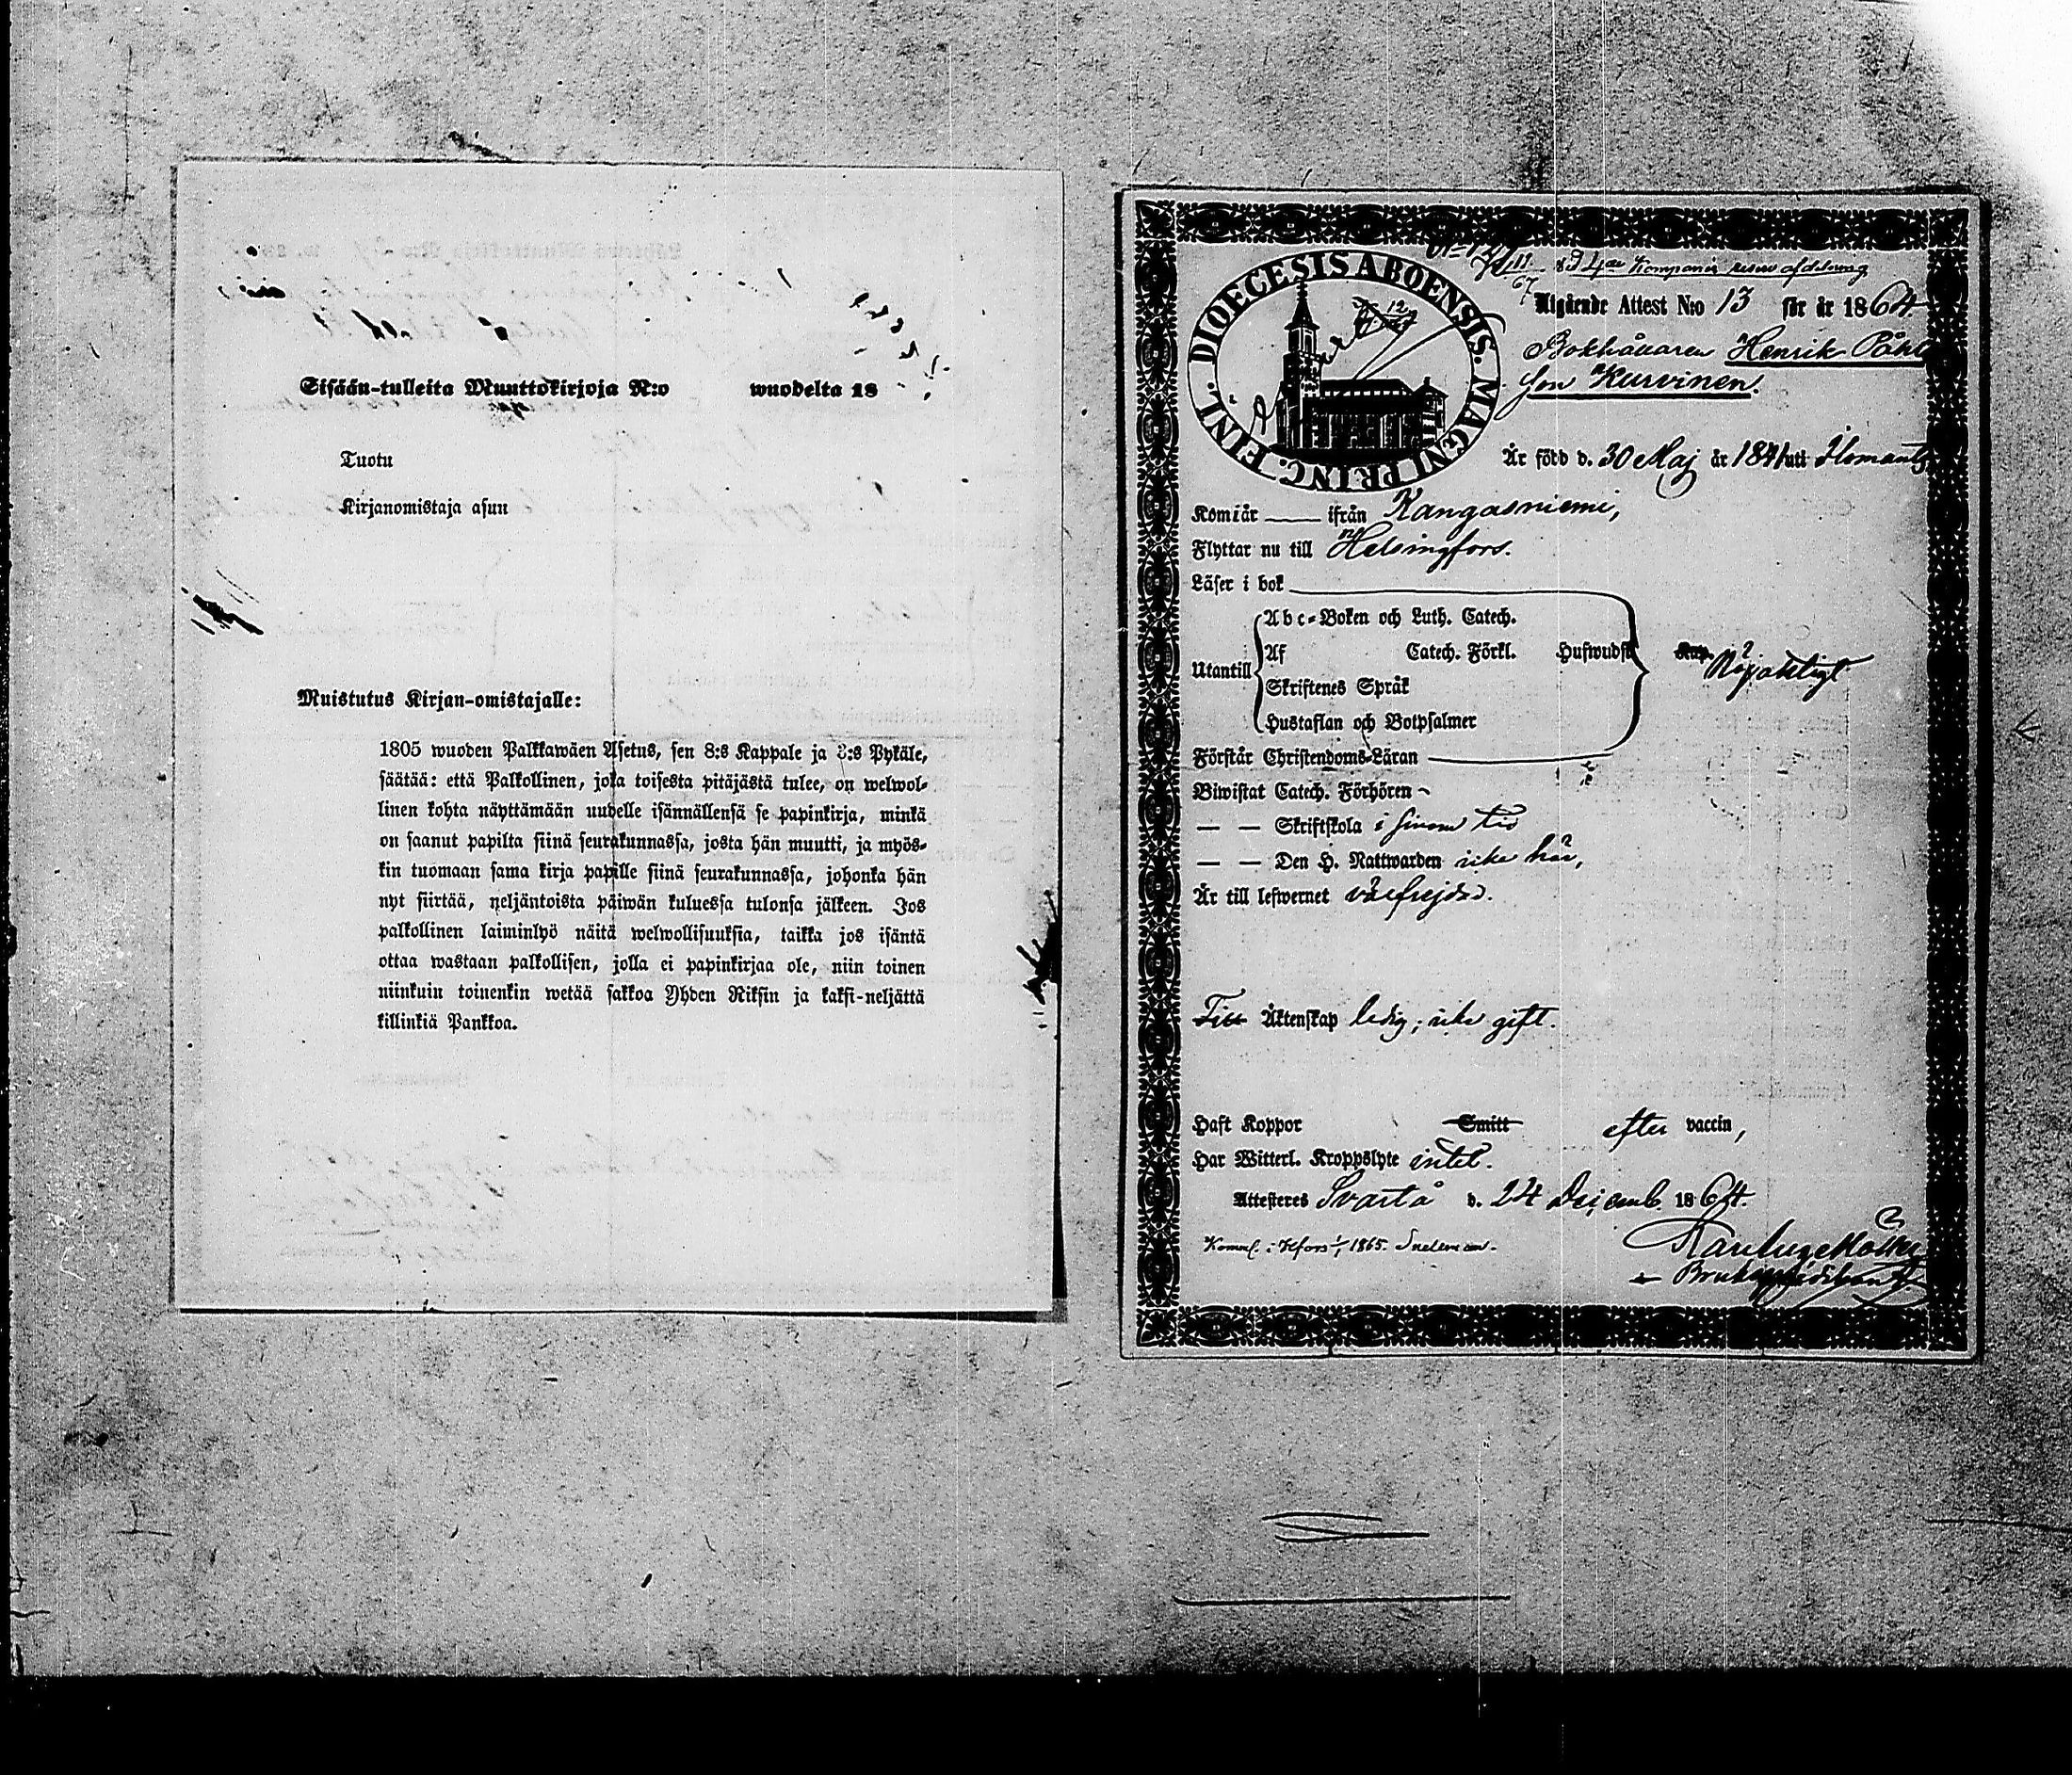 Sisään-tulleita Muuttokirjoja N:o wuodelta 18
Tuotu
Kirjanomistaja asuu
Muistutus Kirjan-omistajalle:
1805 wuoden Palkkawäen Asetus, sen 8:s Kappale ja 3:s Pykäle,
säätää: että Palkollinen, joka toisesta pitäjästä tulee, on welwol-
linen kohta näyttämään uudelle isännällensä se papinkirja, minkä
on saanut papilta siinä seurakunnassa, josta hän muutti, ja myös-
kin tuomaan sama kirja papille siinä seurakunnassa, johonka hän
nyt siirtää, neljäntoista päiwän kuluessa tulonsa jälkeen. Jos
palkollinen laiminlyö näitä welwollisuuksia, taikka jos isäntä
ottaa wastaan palkollisen, jolla ei papinkirjaa ole, niin toinen
niinkuin toinenkin wetää sakkoa Yhden Riksin ja kaksi-neljättä
killinkiä Pankkoa.
DIOECESIS ABOENSIS. MAGNI PRINC. FINL.
4de Kompanie reserv afdelning
Utgående Attest N:o 13 för år 1864
Bokhållaren Henrik Påhl
son Kurvinen.
Är född d. 30 Maj år 1841 uti Ilomants
Kom i år — ifrån Kangasniemi,
Flyttar nu till Helsingfors.
Läser i bok
Utantill
Abc-Boken och Luth. Catech.
Af Catech. Förkl. Hufwudst
Skriftenes Språk
Hustaflan och Botpsalmer
Förstår Christendoms-Läran
Biwistat Catech. Förhören
— — Skriftskola i sinom tid
— — Den H. Nattwarden icke här,
Är till lefwernet välfrejdad.
Till Äktenskap ledig; icke gift.
Haft Koppor Smitt efter vaccin,
Har Witterl. Kroppslyte intet.
Attesteres Svartå d. 24 Decemb. 1864.
Komml. i Hfors 1/1 1865.